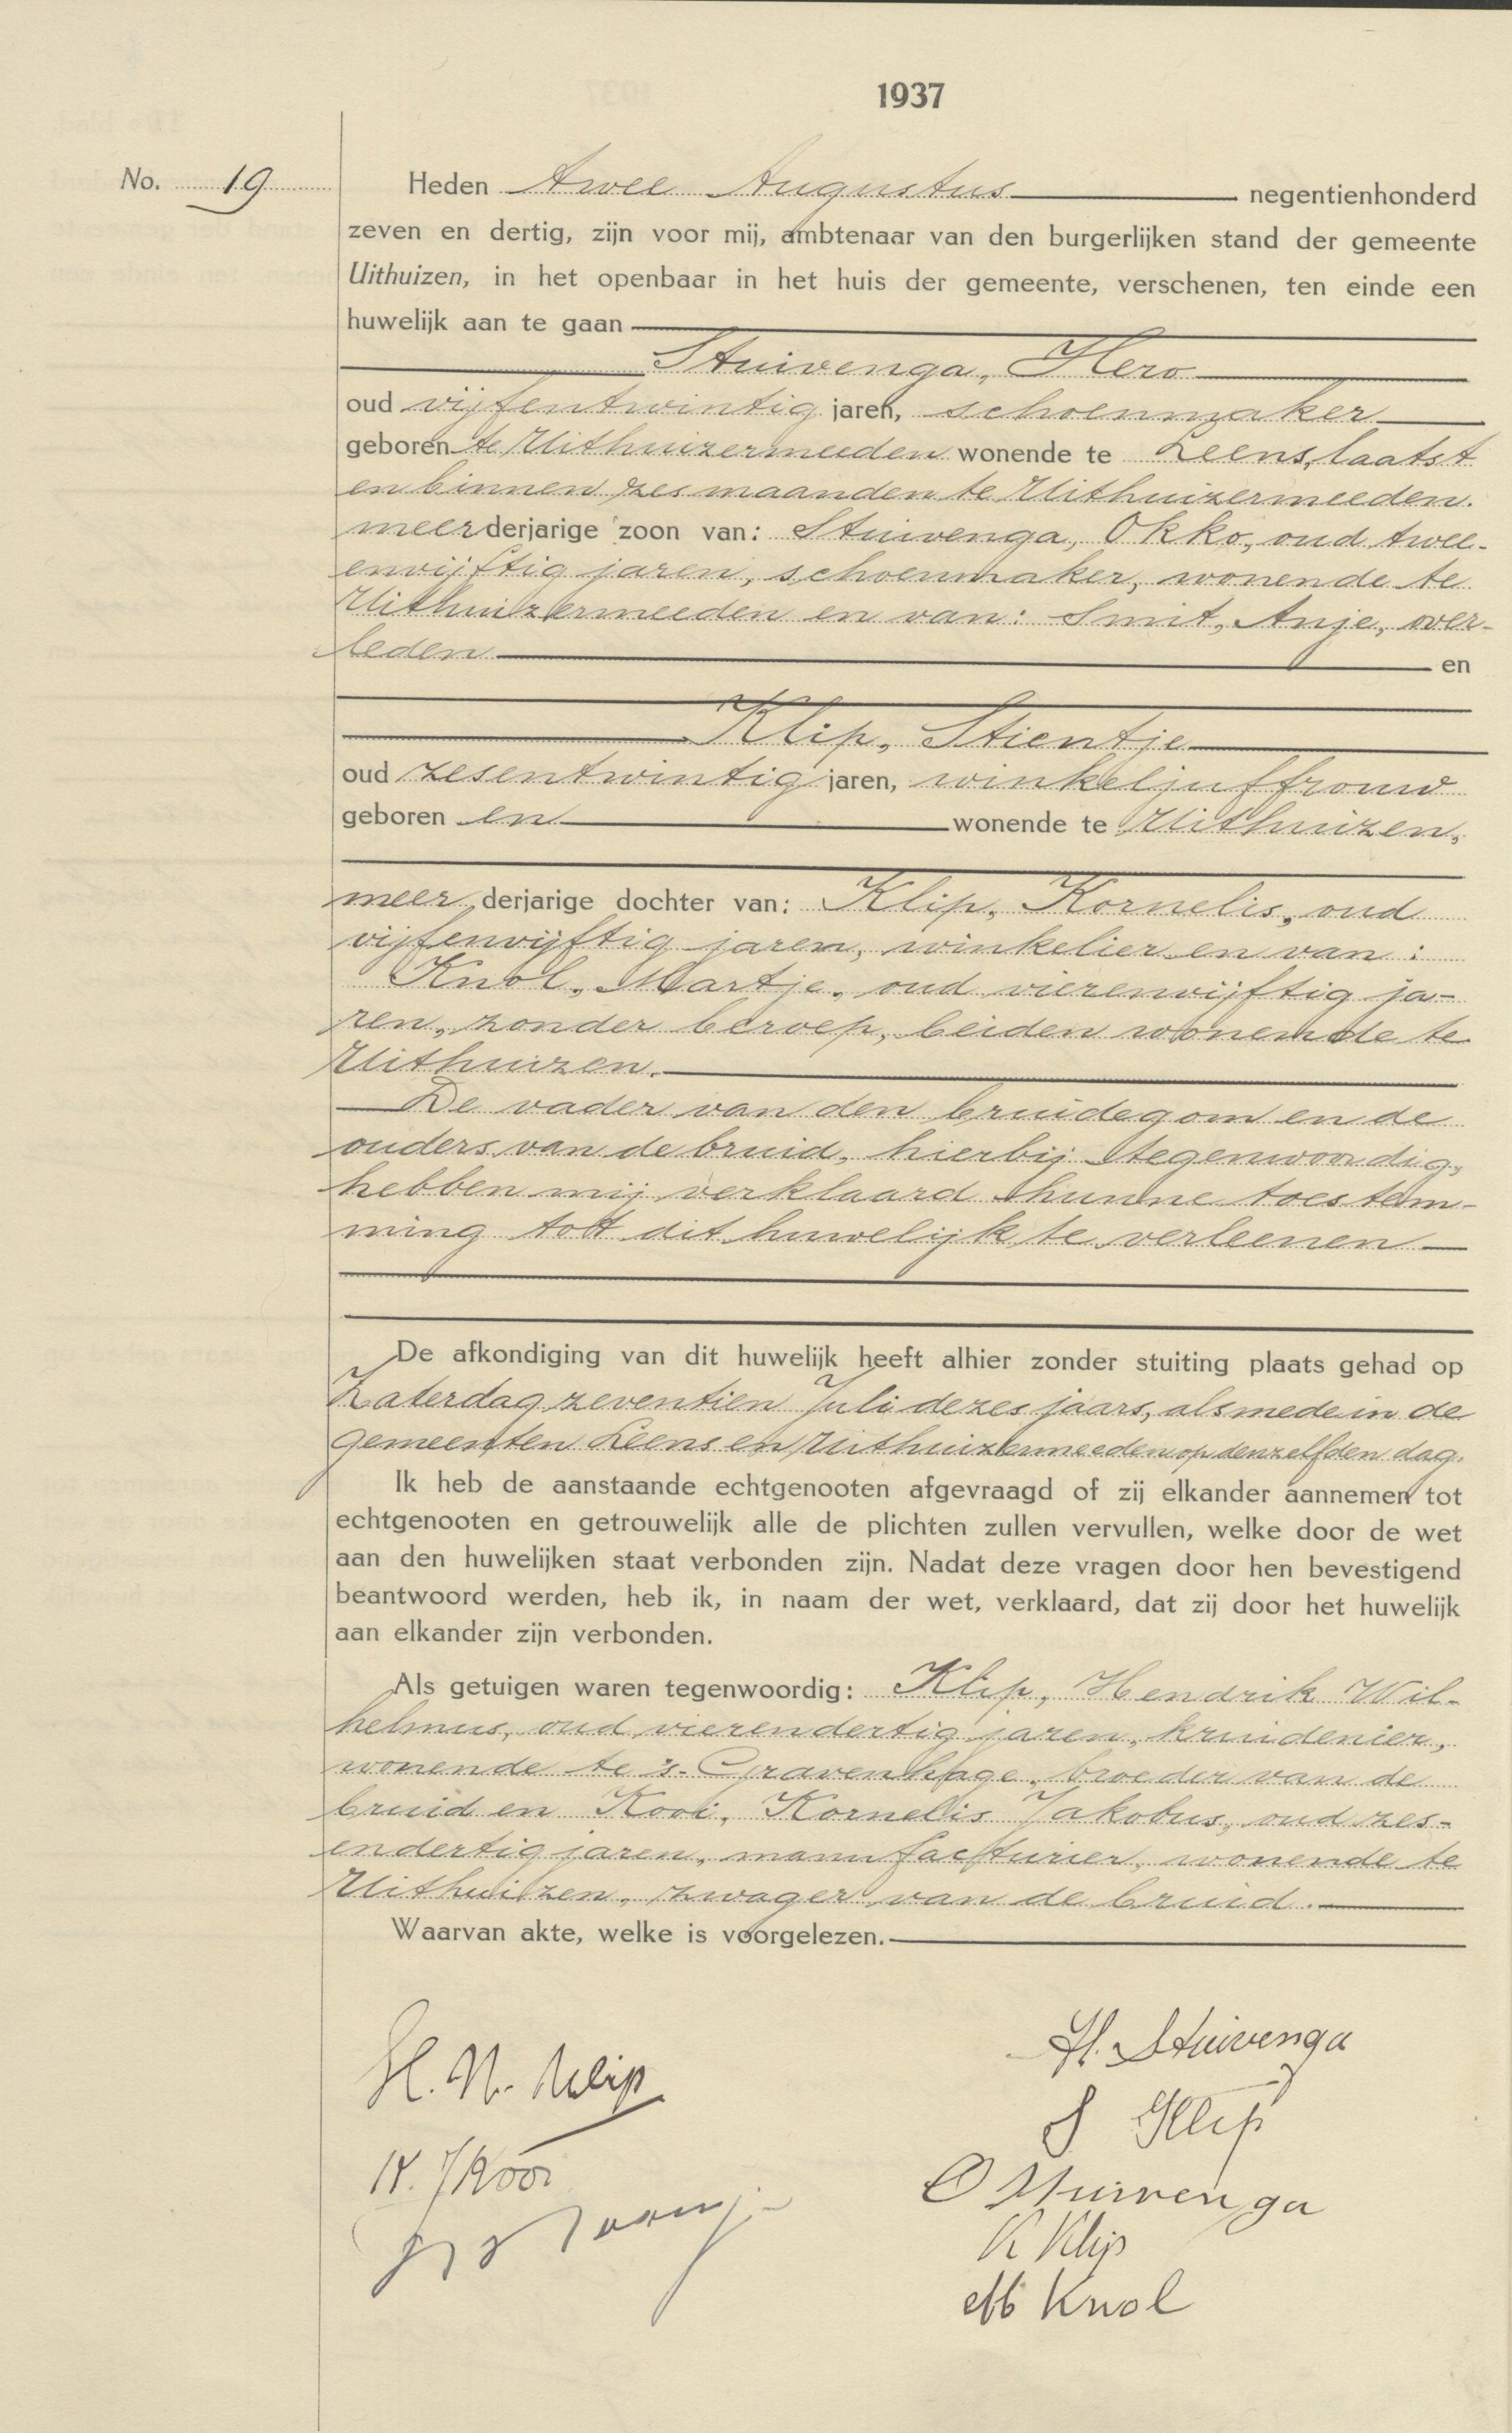 1937
No. 19
Heden twee Augustus negentienhonderd
zeven en dertig, zijn voor mij, ambtenaar van den burgerlijken stand der gemeente
Uithuizen, in het openbaar in het huis der gemeente, verschenen, ten einde een
huwelijk aan te gaan
Stuivenga, Hero
oud vijfentwintig jaren, schoenmaker
geboren te Uithuizermeeden wonende te Leens, laatst
en binnen zes maanden te Uithuizermeeden.
meerderjarige zoon van: Stuivenga, Okko, oud twee-
envijftig jaren, schoenmaker, wonende te
Uithuizermeeden en van: Smit, Anje, over-
leden en
Klip, Stientje
oud zesentwintig jaren, winkeljuffrouw
geboren en wonende te Uithuizen,
meer derjarige dochter van: Klip, Kornelis, oud
vijfenvijftig jaren, winkelier en van:
Knol, Martje, oud vierenvijftig ja-
ren, zonder beroep, beiden wonende te
Uithuizen.
De vader van den bruidegom en de
ouders van de bruid, hierbij tegenwoordig,
hebben mij verklaard hunne toestem-
ming tot dit huwelijk te verleenen
De afkondiging van dit huwelijk heeft alhier zonder stuiting plaats gehad op
Zaterdag zeventien Juli dezes jaars, alsmede in de
gemeenten Leens en Uithuizermeeden op denzelfden dag.
Ik heb de aanstaande echtgenooten afgevraagd of zij elkander aannemen tot
echtgenooten en getrouwelijk alle de plichten zullen vervullen, welke door de wet
aan den huwelijken staat verbonden zijn. Nadat deze vragen door hen bevestigend
beantwoord werden, heb ik, in naam der wet, verklaard, dat zij door het huwelijk
aan elkander zijn verbonden.
Als getuigen waren tegenwoordig: Klip, Hendrik Wil-
helmus, oud vierendertig jaren, kruidenier,
wonende te 's-Gravenhage, broeder van de
bruid en Kooi, Kornelis Jakobus, oud zes-
endertig jaren, manufacturier, wonende te
Uithuizen, zwager van de bruid.
Waarvan akte, welke is voorgelezen.
H. Stuivenga
H. W. Klip
S Klip
K. J Kooi
O Stuivenga
K Klip
M Knol